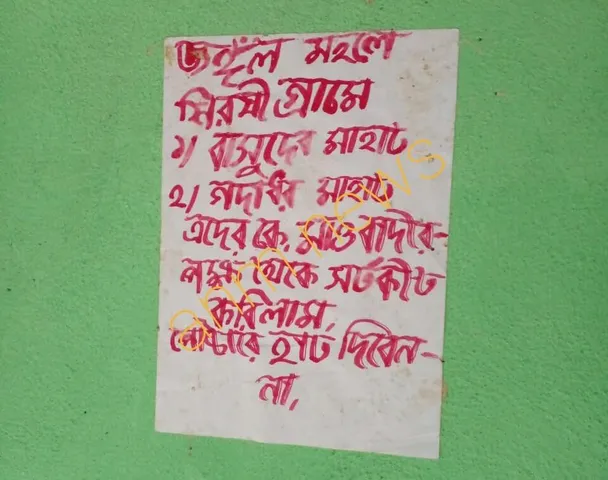 জঙ্গল মহলে
শিরষী গ্রামে
১) বাসুদেব মাহাত
২) গদাধর মাহাত
এদের কে, মাওবাদীর-
লক্ষ্য থেকে সর্তকীত
করিলাম,
পোষ্টারে হাত দিবেন-
না,
anm news